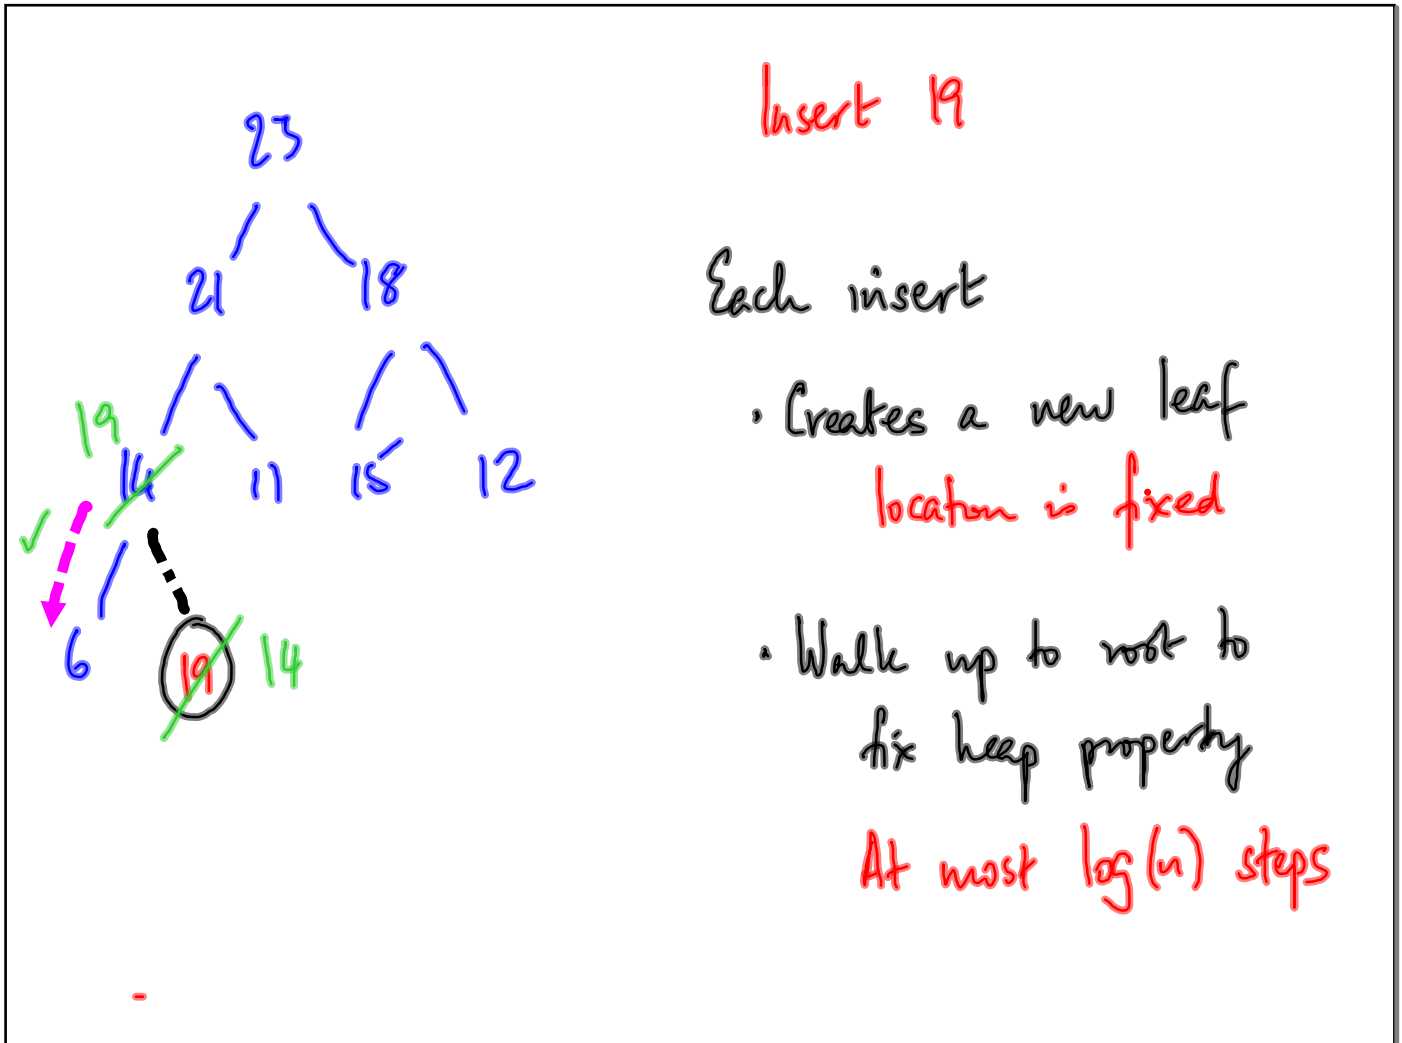 Insert 19
23
21 18
19
14 11 15 12
6 19 14
Each insert
· Creates a new leaf
location is fixed
· Walk up to root to
fix heap property
At most log(n) steps